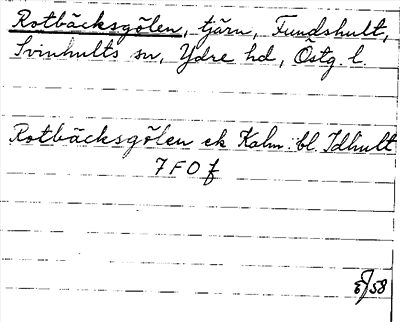 Rotbäcksgölen, tjärn, Fundshult,
Svinhults sn, Ydre hd, Östg. l.
Rotbäcksgölen ek Kalm. bl. Idhult
7 F 0 f
58